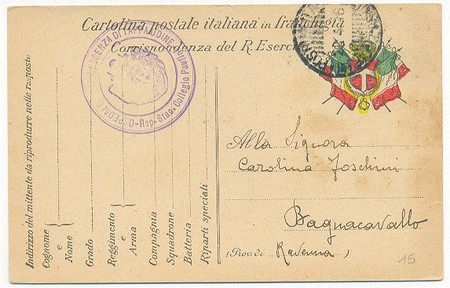 Cartolina postale italiana in franchigia
Corrispondenza del R. Eserc
DENZA DI TAPPA UDINE
Rep. Staz. Collegio
Indirizzo del mittente da riprodurre nelle risposte
Cognome
e
Nome
Grado
Reggimento
e
Arma
Compagnia
Squadrone
Batteria
Riparti speciali
Alla Signora
Carolina Foschini
Bagnacavallo
(Prov. di Ravenna)
15